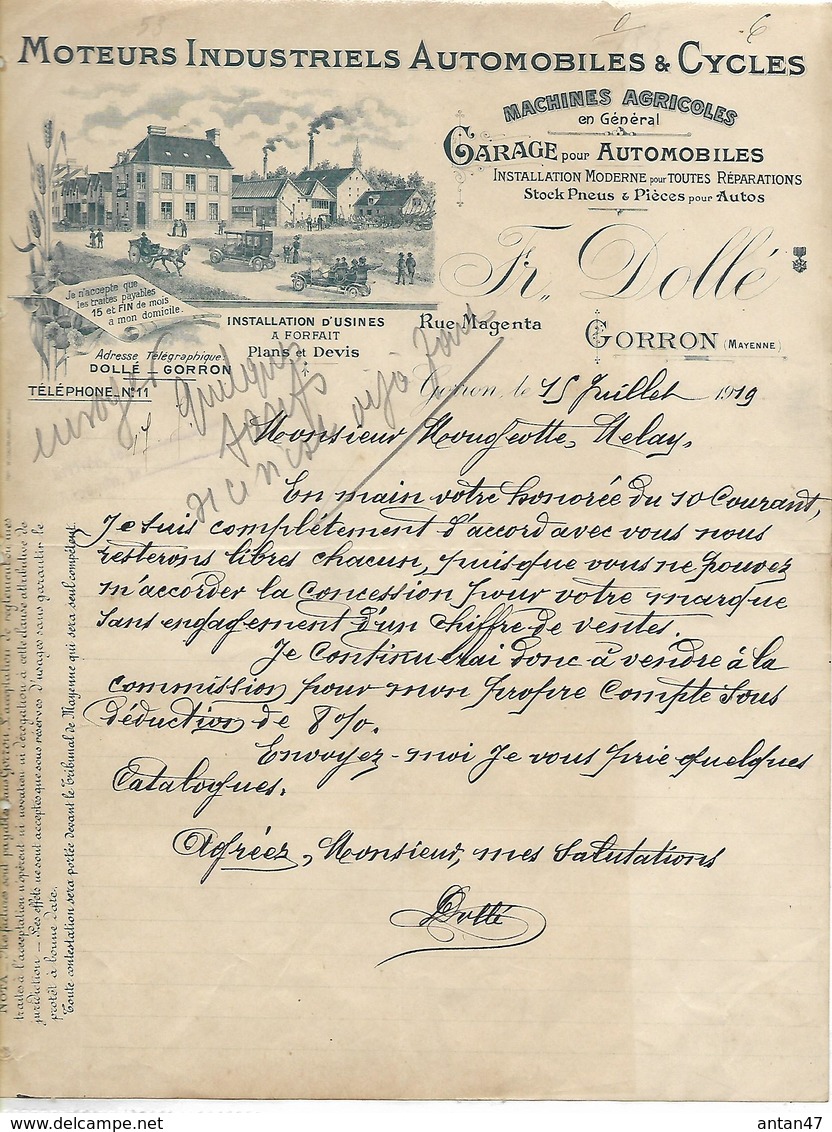 MOTEURS INDUSTRIELS AUTOMOBILES & CYCLES
MACHINES AGRICOLES
en Général
GARAGE pour AUTOMOBILES
INSTALLATION MODERNE pour TOUTES RÉPARATIONS
Stock Pneus & Pièces pour Autos
Fr. Dollé
Rue Magenta
GORRON (MAYENNE)
Je n'accepte que
les traites payables
15 et FIN de mois
à mon domicile.
INSTALLATION D'USINES
A FORFAIT
Plans et Devis
Adresse Télégraphique
DOLLÉ - GORRON
TÉLÉPHONE N° 11
envoyer
17 quelques
tarifs
Gorron, le 15 Juillet 1919
Monsieur Mougeotte, Melay.
En main votre honorée du 10 Courant,
Je suis complètement d'accord avec vous nous
resterons libres chacun, puisque vous ne pouvez
m'accorder la Concession pour votre marque
sans engagement d'un chiffre de ventes.
Je Continuerai donc à vendre à la
commission pour mon propre Compte sous
déduction de 8%.
Envoyez-moi Je vous prie quelques
Catalogues.
Agréez, Monsieur, mes Salutations
Dollé
NOTA - Mes factures sont payables à Gorron. L'acceptation de règlement ou mes
traites à l'acceptation n'opèrent ni novation ni dérogation à cette clause attributive de
juridiction - Les effets ne sont acceptés que sous réserves d'usages sans garantir le
protêt à bonne date.
Toute contestation sera portée devant le Tribunal de Mayenne qui sera seul compétent.
antan47